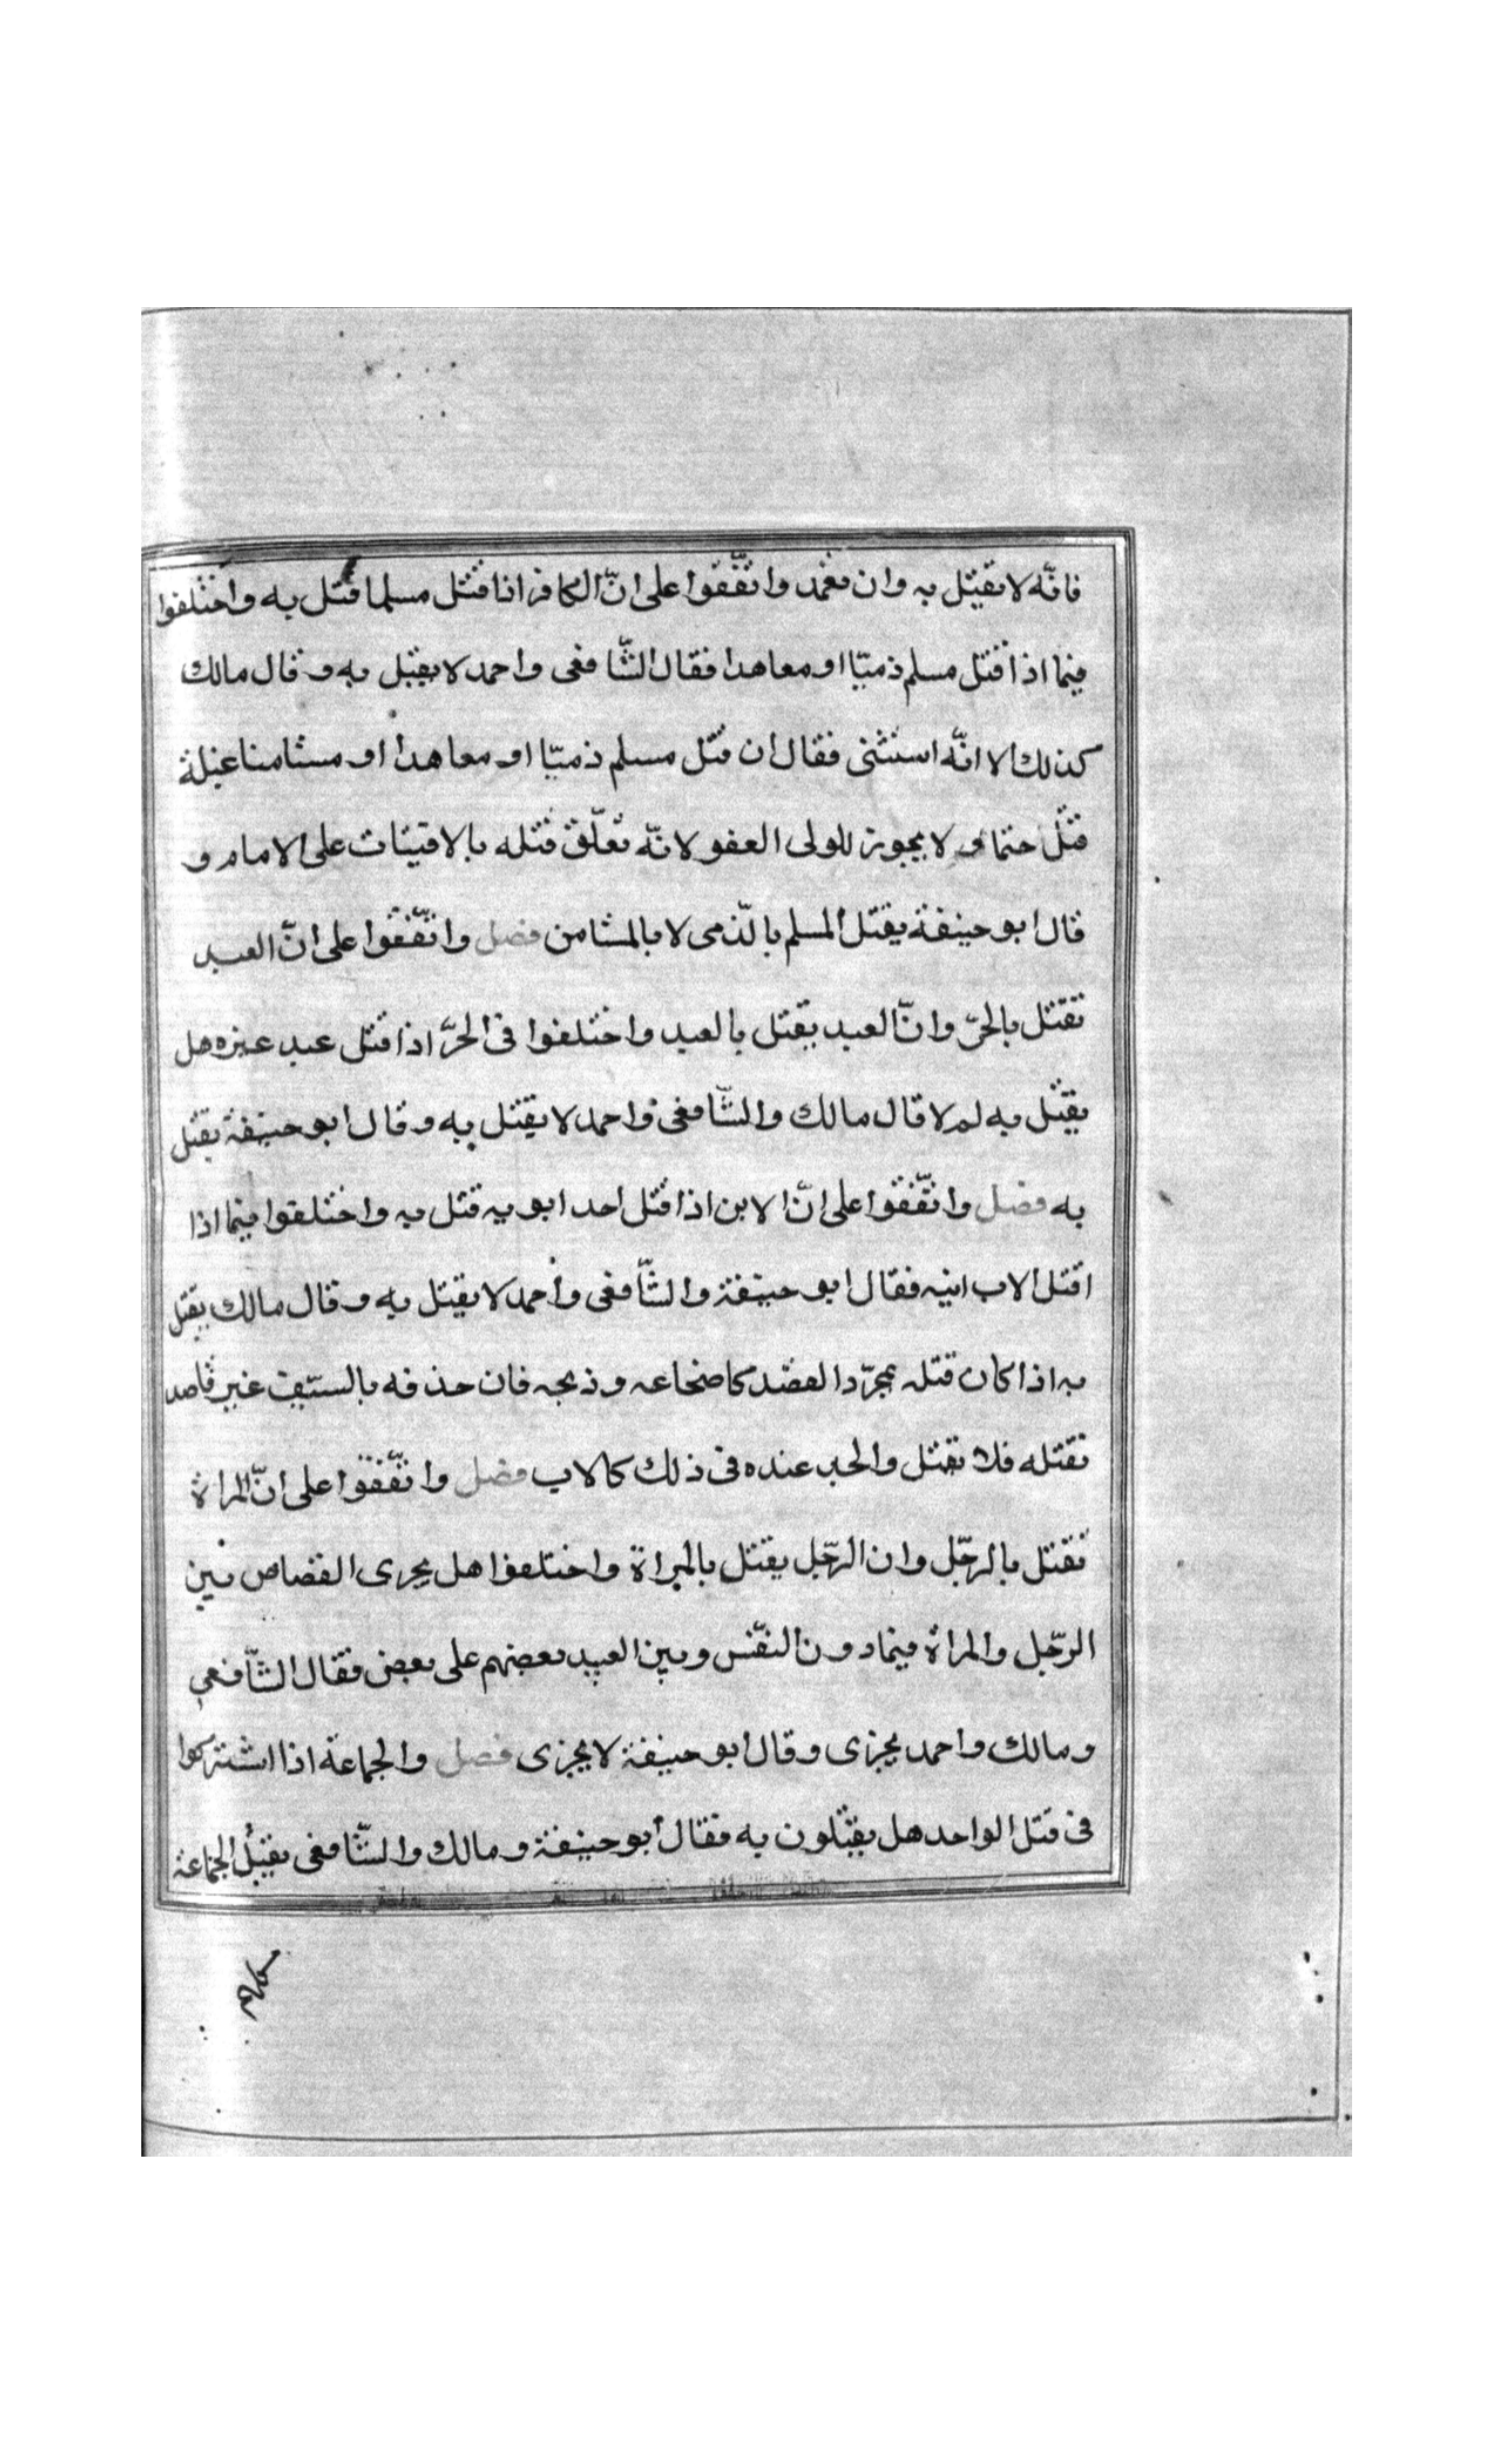 فانّه لا يقيتل به وان تعمد واتّفقوا على انّ الكافر اذا قتل مسلما قتل به واختلفوا
فيما اذا قتل مسلم ذميّا او معاهدا فقال الشّافعى واحمد لا يقتل به وقال مالك
كذلك الا انّه استثنى فقال ان قتل مسلم ذميّا او معاهدا او مستامنا غيلة
قتل حتما ولا يجوز للولى العفو لانّه تعلّق قتله بالافتيات على الامام و
قال ابو حنيفة يقتل المسلم بالذّمى لا بالمستامن فصل واتّفقوا على انّ العبد
تقتل بالحرّ وانّ العبد يقتل بالعبد واختلفوا فى الحرّ اذا قتل عبد غيره هل
يقتل به لم لا قال مالك والشّافعى واحمد لا يقتل به وقال ابو حنيفة يقتل
به فصل واتّفقوا على انّ الابن اذا قتل احد ابويه قتل به واختلفوا فيما اذا
اقتل الاب ابنه فقال ابو حنيفة والشّافعى واحمد لا يقتل به وقال مالك يقتل
به اذا كان قتله بمجرّد القصد كاضجاعه وذبحه فان حذفه بالسّيف غير قاصد
لقتله فلا يقتل والجد عنده فى ذلك كالاب فصل واتّفقوا على انّ المراة
تقتل بالرجّل وان الرجّل يقتل بالمراة واختلفوا هل يجرى القصاص بين
الرجّل والمراة فيما دون النفّس وبين العبيد بعضهم على بعض فقال الشّافعي
ومالك واحمد يجزى وقال ابو حنيفة لا يجزى فصل والجماعة اذا اشتركوا
فى قتل الواحد هل يقتلون به فقال ابو حنيفة ومالك والشّافعى يقتل الجماعة